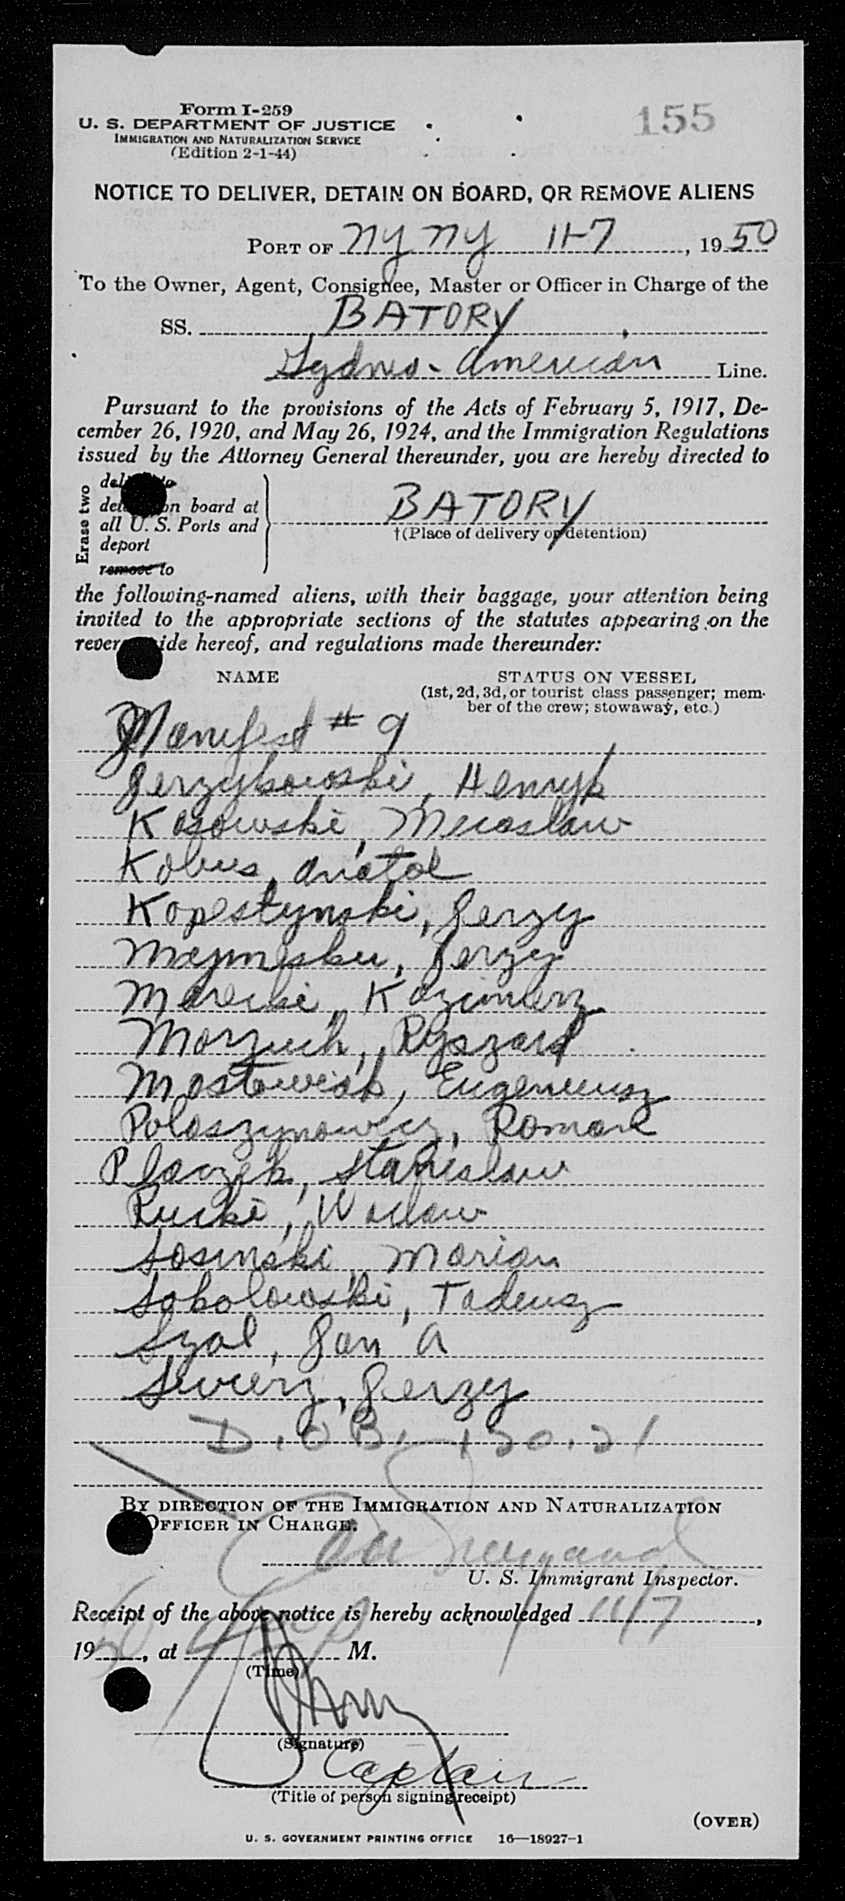 Form I-259
155
U. S. DEPARTMENT OF JUSTICE
IMMIGRATION AND NATURALIZATION SERVICE
(Edition 2-1-44)
NOTICE TO DELIVER, DETAIN ON BOARD, OR REMOVE ALIENS
PORT OF NY NY 11-7, 1950
To the Owner, Agent, Consignee, Master or Officer in Charge of the
SS. BATORY
Gydnia-American Line.
Pursuant to the provisions of the Acts of February 5, 1917, De-
cember 26, 1920, and May 26, 1924, and the Immigration Regulations
issued by the Attorney General thereunder, you are hereby directed to
Erase two
on board at
all U. S. Ports and
deport
remove to
BATORY
†(Place of delivery or detention)
the following-named aliens, with their baggage, your attention being
invited to the appropriate sections of the statutes appearing on the
reverse side hereof, and regulations made thereunder:
NAME STATUS ON VESSEL
(1st, 2d, 3d, or tourist class passenger; mem-
ber of the crew; stowaway, etc.)
Manifest # 9
Jerzykowski, Henryk
Kosowski, Miroslaw
Kobus, Anatol
Kopestynski, Jerzy
Jerzy
Marecki, Kazimierz
Ryszard
Mostowiak, Eugeniusz
Poloszynowicz, Roman
Placzek, Stanislaw
Rucki, Waclaw
Sosinski, Marian
Sokolowski, Tadeusz
Szal, Jan A
Swierz, Jerzy
BY DIRECTION OF THE IMMIGRATION AND NATURALIZATION
OFFICER IN CHARGE:
U. S. Immigrant Inspector.
Receipt of the above notice is hereby acknowledged 11/7,
1950, at M.
(Time)
(Signature)
Captain
(Title of person signing receipt)
(OVER)
U. S. GOVERNMENT PRINTING OFFICE 16—18927-1